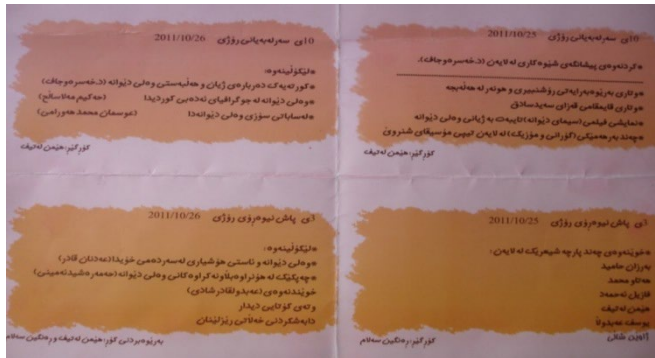 10ی سەرلەبەیانی رۆژی 2011/10/25
*کردنەوەی پیشانگەی شێوەکاری لەلایەن (د.خەسرەوجاف).
*وتاری بەڕێوەبەرایەتی رۆشنبیری و هونەر لە هەڵەبجە
*وتاری قایمقامی قەزای سەیدسادق
*نمایشی فیلمی (سیمای دێوانە) تایبەت بە ژیانی وەلی دێوانە
*چەند بەرهەمێکی (گۆرانی و مۆزیک) لەلایەن تیپی مۆسیقای شنروێ
کۆڕگێڕ: هێمن لەتیف
10ی سەرلەبەیانی رۆژی 2011/10/26
*لێکۆڵینەوە:
*کورتەیەک دەربارەی ژیان و هەڵبەستی وەلی دێوانە (د.خەسرەوجاف)
*وەلی دێوانە لە جوگرافیای ئەدەبی کوردیدا (حەکیم مەلاساڵح)
*لەساباتی سۆزی وەلی دێوانەدا (عوسمان محمد هەورامی)
کۆڕگێڕ: هێمن لەتیف
3ی پاش نیوەڕۆی رۆژی 2011/10/25
*خوێنەوەی چەند پارچە شیعرێک لەلایەن:
بەرزان حامید
هەتاو محمد
فازیل ئەحمەد
هێمن لەتیف
یوسف عەبدوڵا
شالی
کۆڕگێڕ: رەنگین سەلام
3ی پاش نیوەڕۆی رۆژی 2011/10/26
*لێکۆڵینەوە:
*وەلی دێوانە و ئاستی هۆشیاری لەسەردەمی خۆیدا (عەدنان قادر)
*چەپکێک لە هۆنراوە بڵاونەکراوەکانی وەلی دێوانە (حەمەڕەشید ئەمینی)
خوێندنەوەی (عەبدولقادرشادی)
وتەی کۆتایی دیدار
دابەشکردنی خەڵاتی رێزلێنان
بەڕێوەبردنی کۆڕ: هێمن لەتیف و رەنگین سەلام